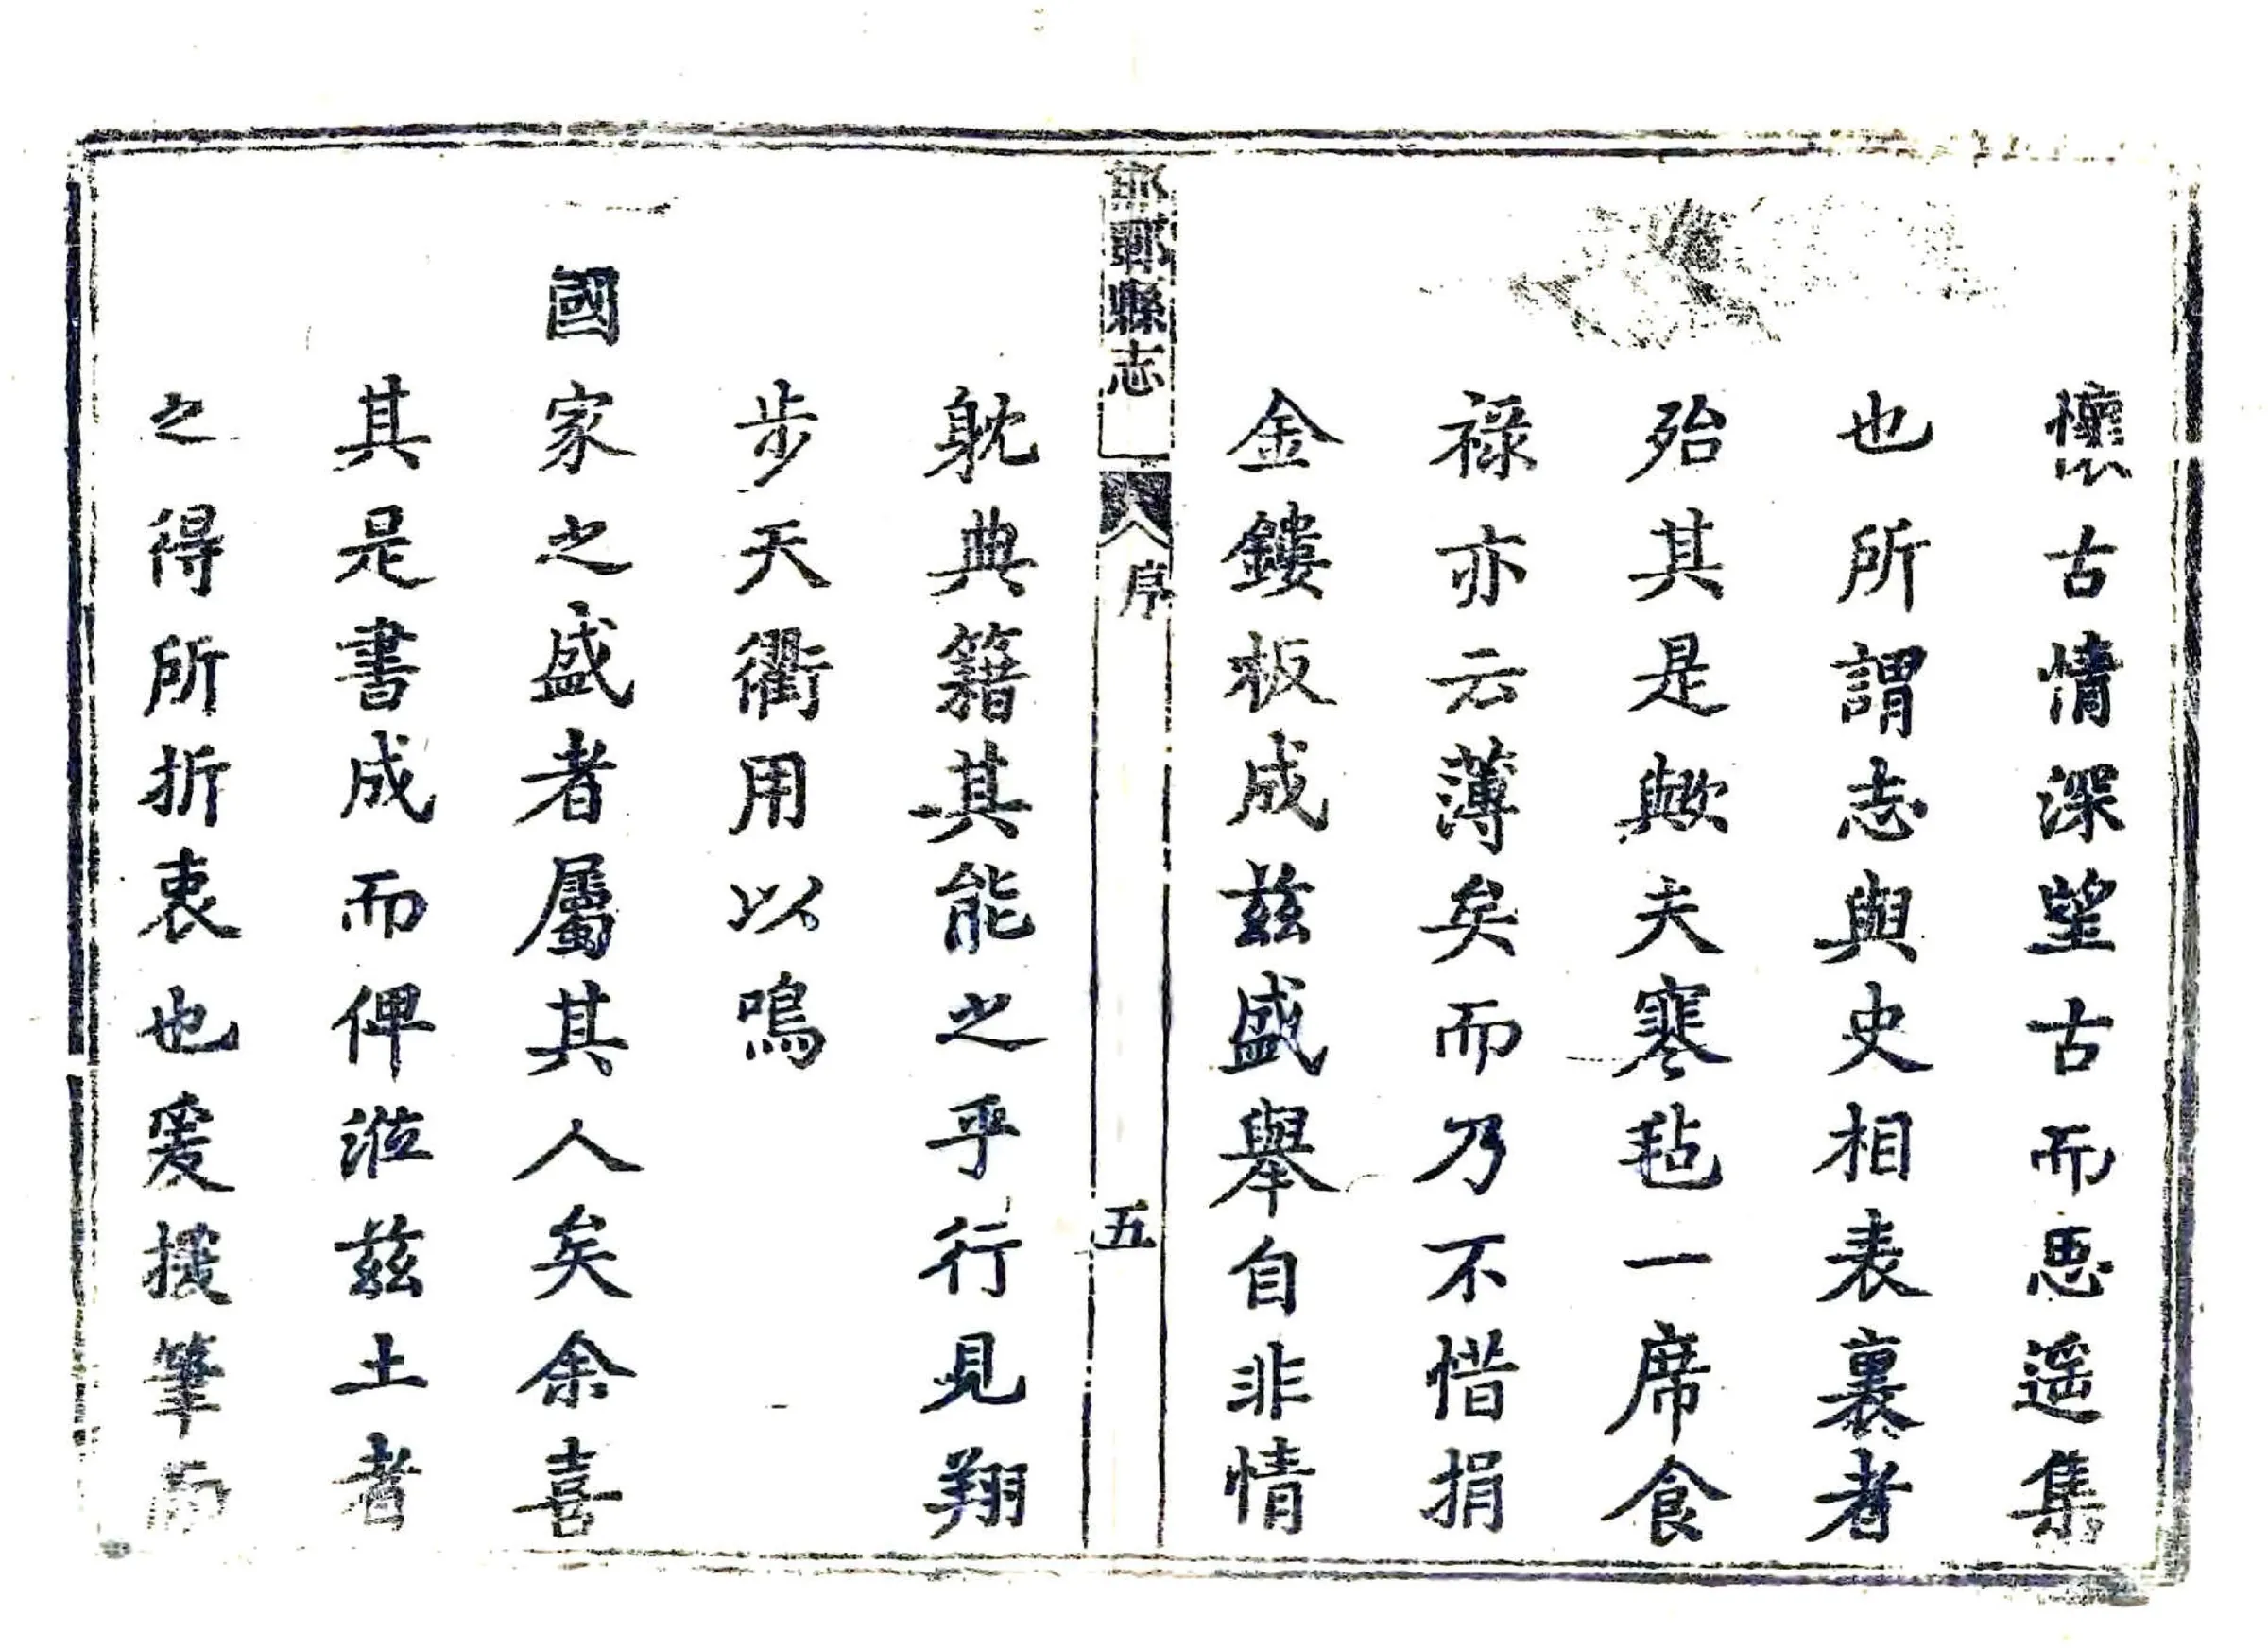 懷古情深望古而思遥集
也所謂志與史相表裏者
殆其是歟夫寒毡一席食
禄亦云薄矣而乃不惜捐
金鏤板成兹盛舉自非情
邯鄲縣志
序
五
躭典籍其能之乎行見翔
步天衢用以鳴
國家之盛者屬其人矣余喜
其是書成而俾涖兹土者
之得所折衷也爰援筆而